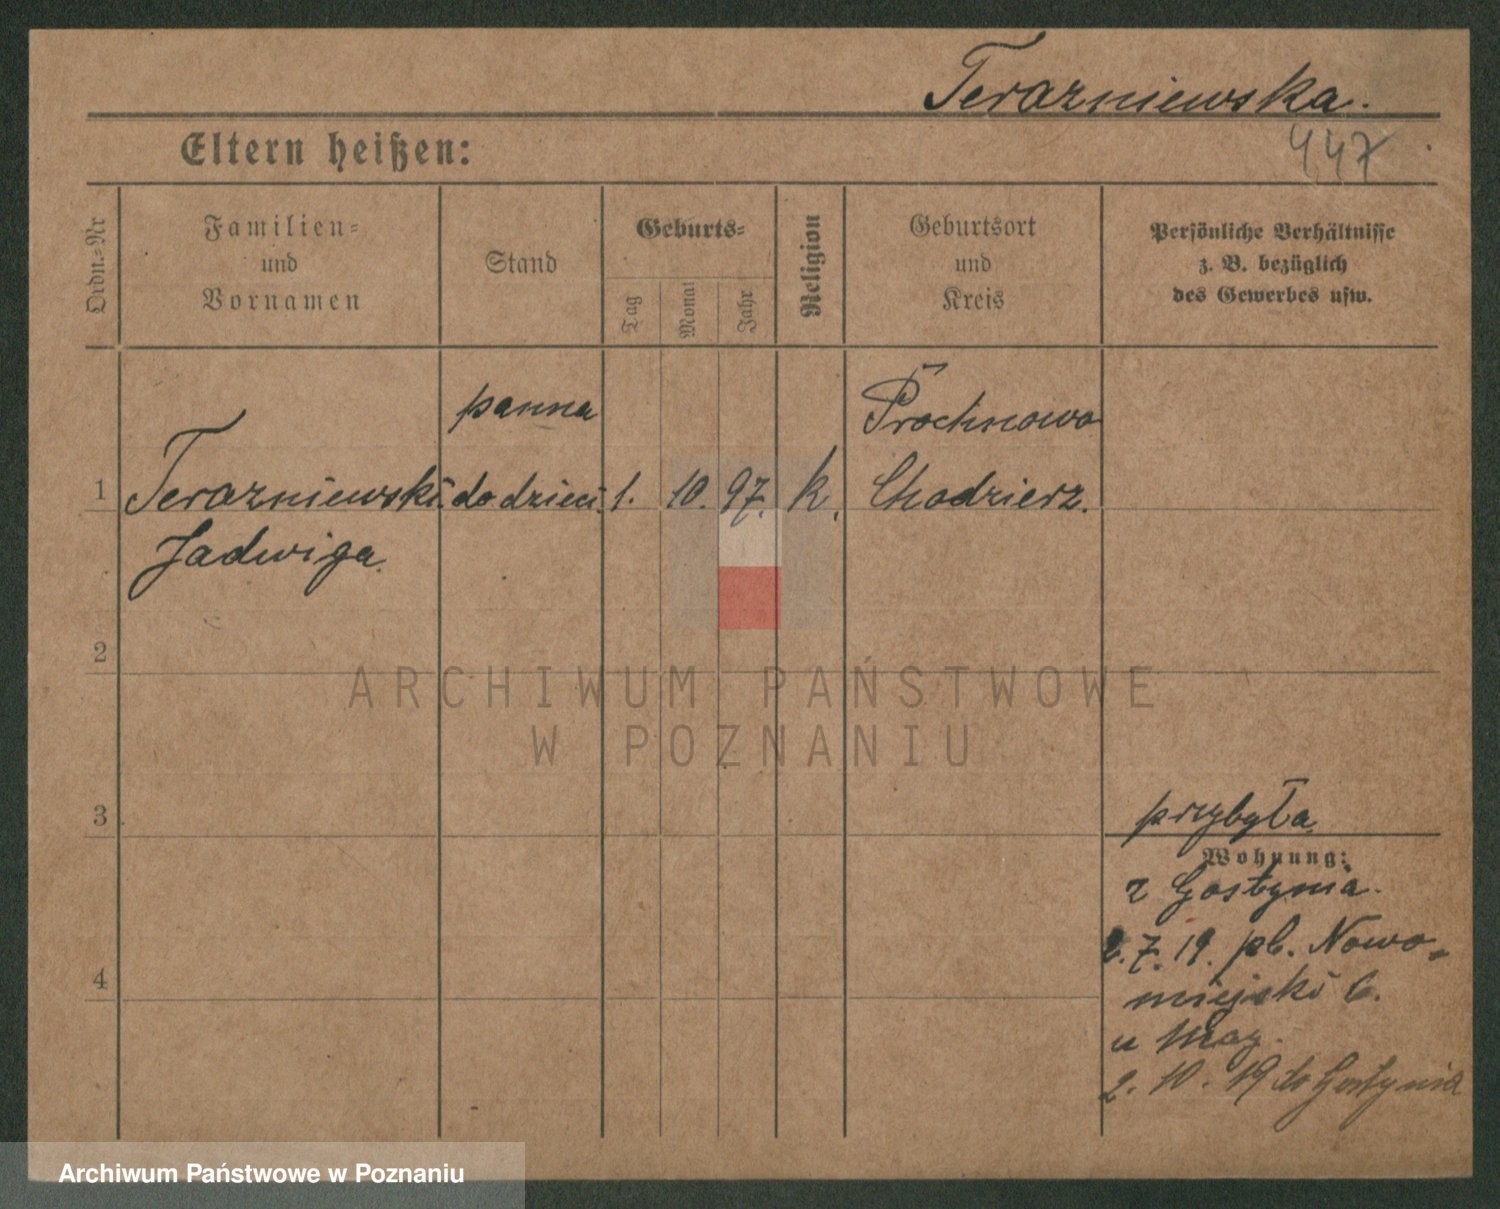 Terazniewska.
447
Eltern heißen:
Ordn.-Nr
Familien-
und
Vornamen
Stand
Geburts-
Tag
Monat
Jahr
Religion
Geburtsort
und
Kreis
Persönliche Verhältnisse
z. B. bezüglich
des Gewerbes usw.
panna
Prochnowo
1 Terazniewski do dzieci. 1. 10. 97. k. Chodzierz.
Jadwiga.
2
3
przybyła
Wohnung:
z Gostynia.
2.7.19. pl. Nowo-
4
miejski 6.
u May.
2. 10. 19 do Gostynia
ARCHIWUM PAŃSTWOWE
W POZNANIU
Archiwum Państwowe w Poznaniu